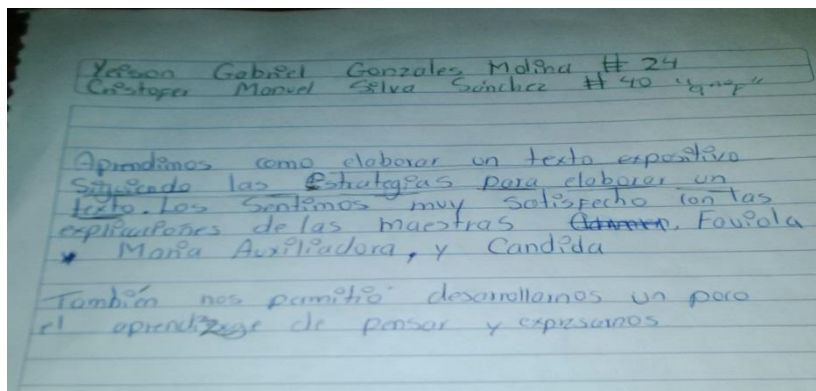 Yeison Gabriel Gonzales Molina # 24
Cristofer Manuel Silva Sánchez # 40
Aprendimos como elaborar un texto expositivo
Siguiendo las Estrategias para elaborar un
texto. Los Sentimos muy Satisfecho con las
explicaciones de las maestras Faviola
Maria Auxiliadora, y Candida
También nos permitió desarrollarnos un poco
el aprendizage de pensar y expresarnos